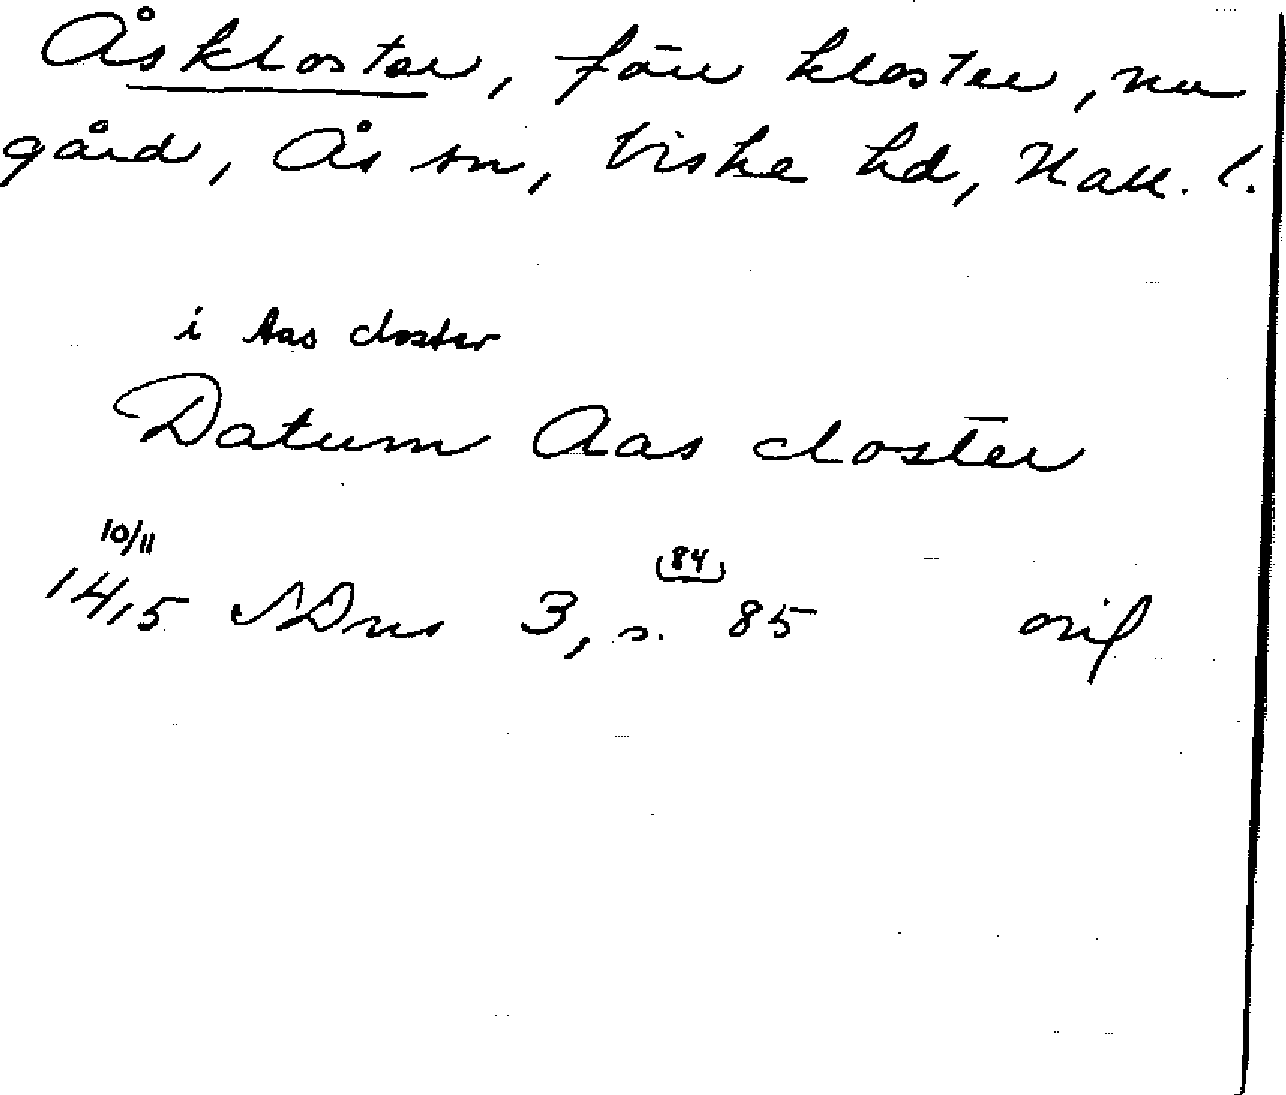 Åskloster, förr kloster, nu
gård, Ås sn, Viske hd, Hall. l.
i Aas closter
Datum Aas closter
10/11
1415 SDns 3, s. (84) 85 orig